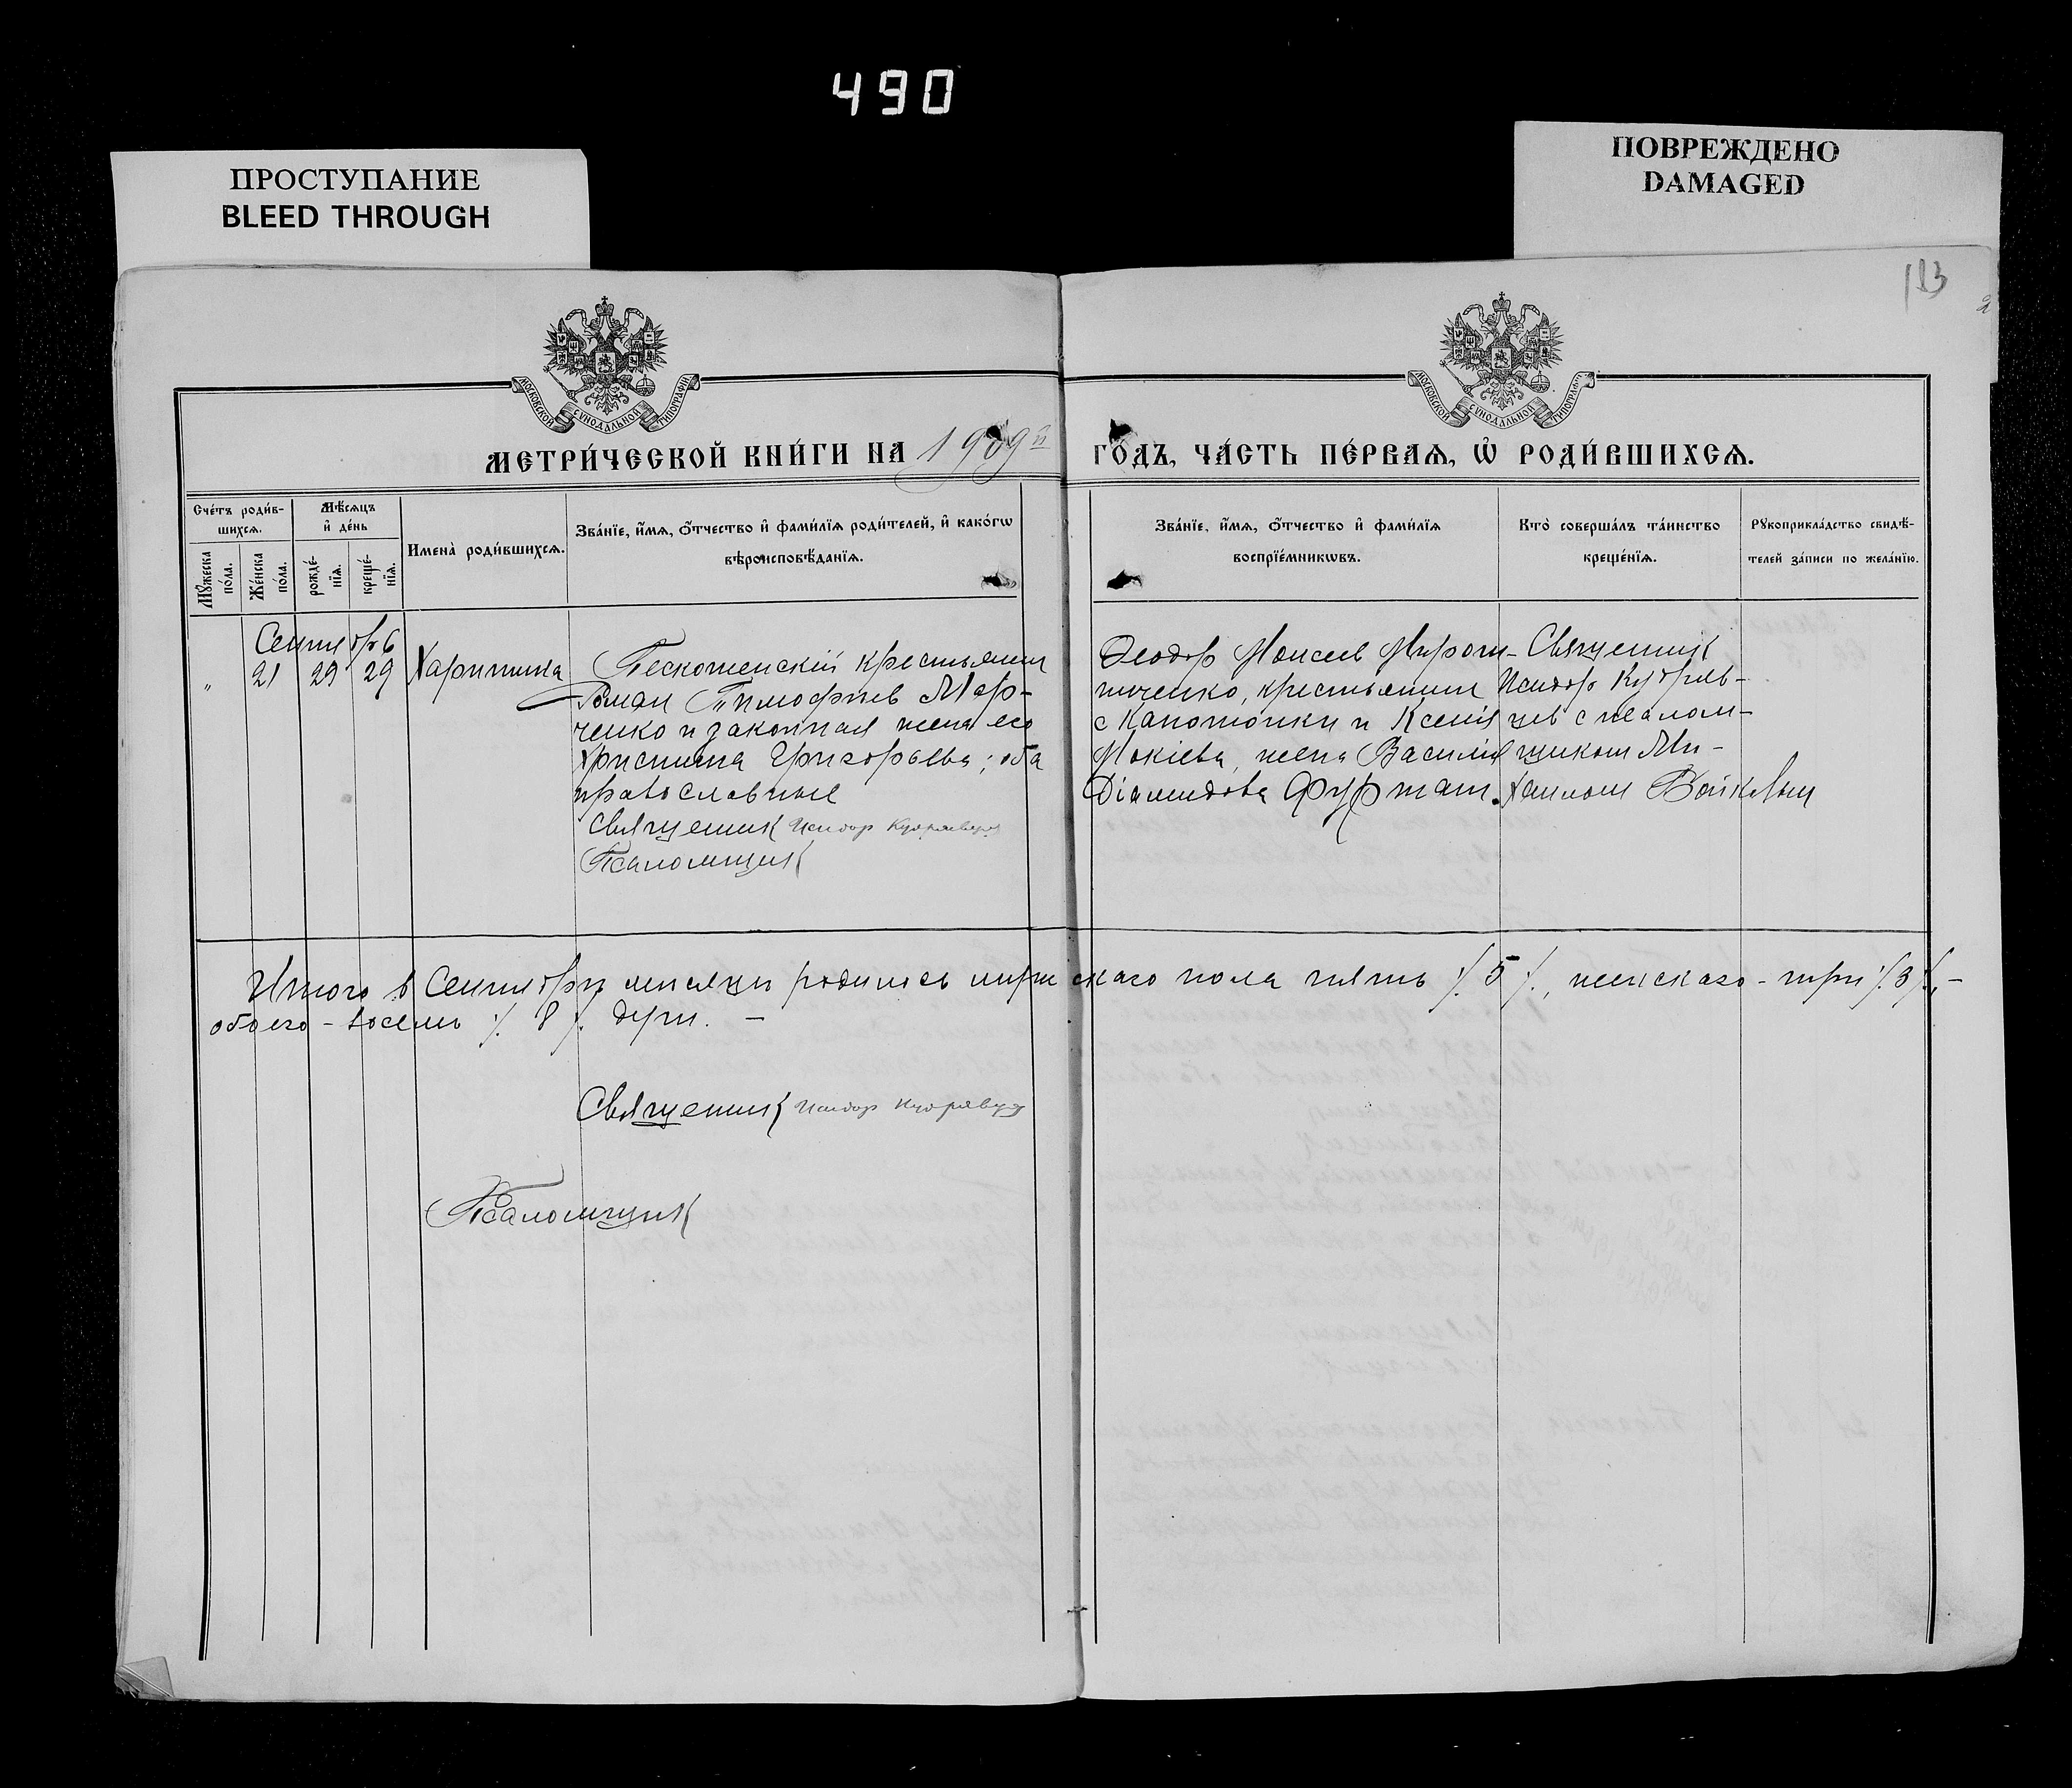 490
ПРОСТУПАНИЕ
BLEED THROUGH
ПОВРЕЖДЕНО
DAMAGED
113
МОСКОВСКОЙ СУНОДАЛЬНОЙ ТИПОГРАФІИ
МОСКОВСКОЙ СУНОДАЛЬНОЙ ТИПОГРАФІИ
МЕТРИ́ЧЕСКОЙ КНИ́ГИ НА 1909й ГО́ДЪ, ЧА́СТЬ ПЕ́РВАѦ, Ѡ҆ РОДИ́ВШИХСѦ.
Сче́тъ роди́в-
шихсѧ.
Мꙋ́жеска
по́ла.
Же́нска
по́ла.
Мѣ́сѧцъ
и҆ де́нь
рожде́-
нїѧ.
креще́-
нїѧ.
Имена̀ роди́вшихсѧ.
Зва́нїе, и҆́мѧ, ѻ҆́тчество и҆ фами́лїѧ роди́телей, и҆ како́гѡ
вѣроисповѣ́данїѧ.
Зва́нїе, и҆́мѧ, ѻ҆́тчество и҆ фами́лїѧ
воспрїе́мникѡвъ.
Кто̀ соверша́лъ та́инство
креще́нїѧ.
Рꙋкоприкла́дство свидѣ́-
телей за́писи по жела́нїю.
Сентябрь
" 21 29 29 Харитина
Пескошенскій крестьянин
Роман Тимофѣев Мар-
ченко и законная жена его
Христина Григорьева; оба
православные
Священник Исидор Кудрявцев
Псаломщик
Феодор Моисеев Мирош-
ниченко, крестьянин
с Капотонки и Ксенія
Мокіева, жена Василія
Діамидова Фурман.
Священник
Исидор Кудряв-
цев с псалом-
щиком Ми-
хаилом Войковым
Итого в Сентябрѣ мѣсяцѣ родилось мужскаго пола пять /. 5 /., женскаго - три /. 3 /., -
обоего - восемь /. 8 /. душ. -
Священник Исидор Кудрявцев
Псаломщик